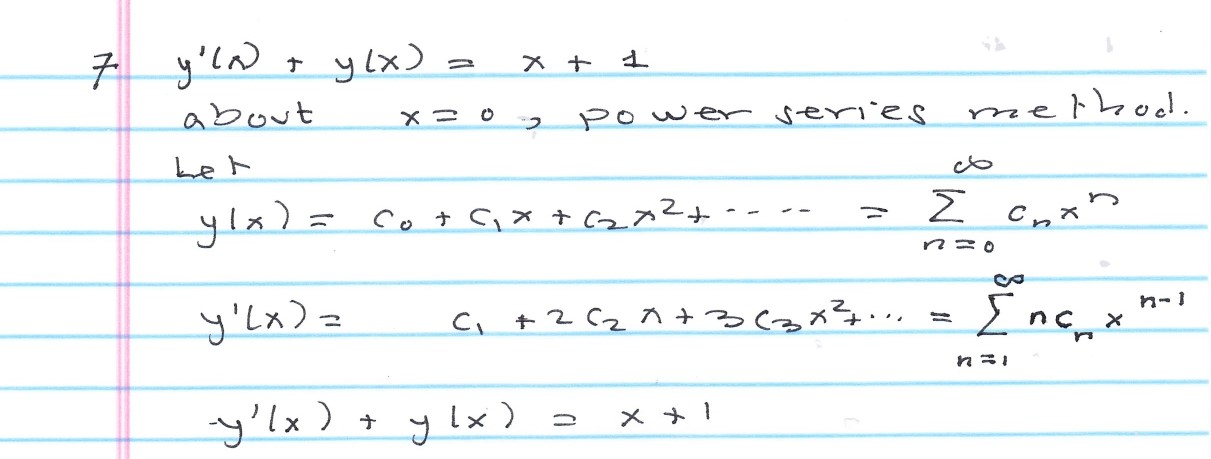 7 y'(x) + y(x) = x + 1
about x = 0, power series method.
Let
y(x) = c₀ + c₁x + c₂x² + ----- = ∑_{n=0}^{∞} cₙxⁿ
y'(x) = c₁ + 2c₂x + 3c₃x² + ... = ∑_{n=1}^{∞} ncₙx^{n-1}
y'(x) + y(x) = x + 1